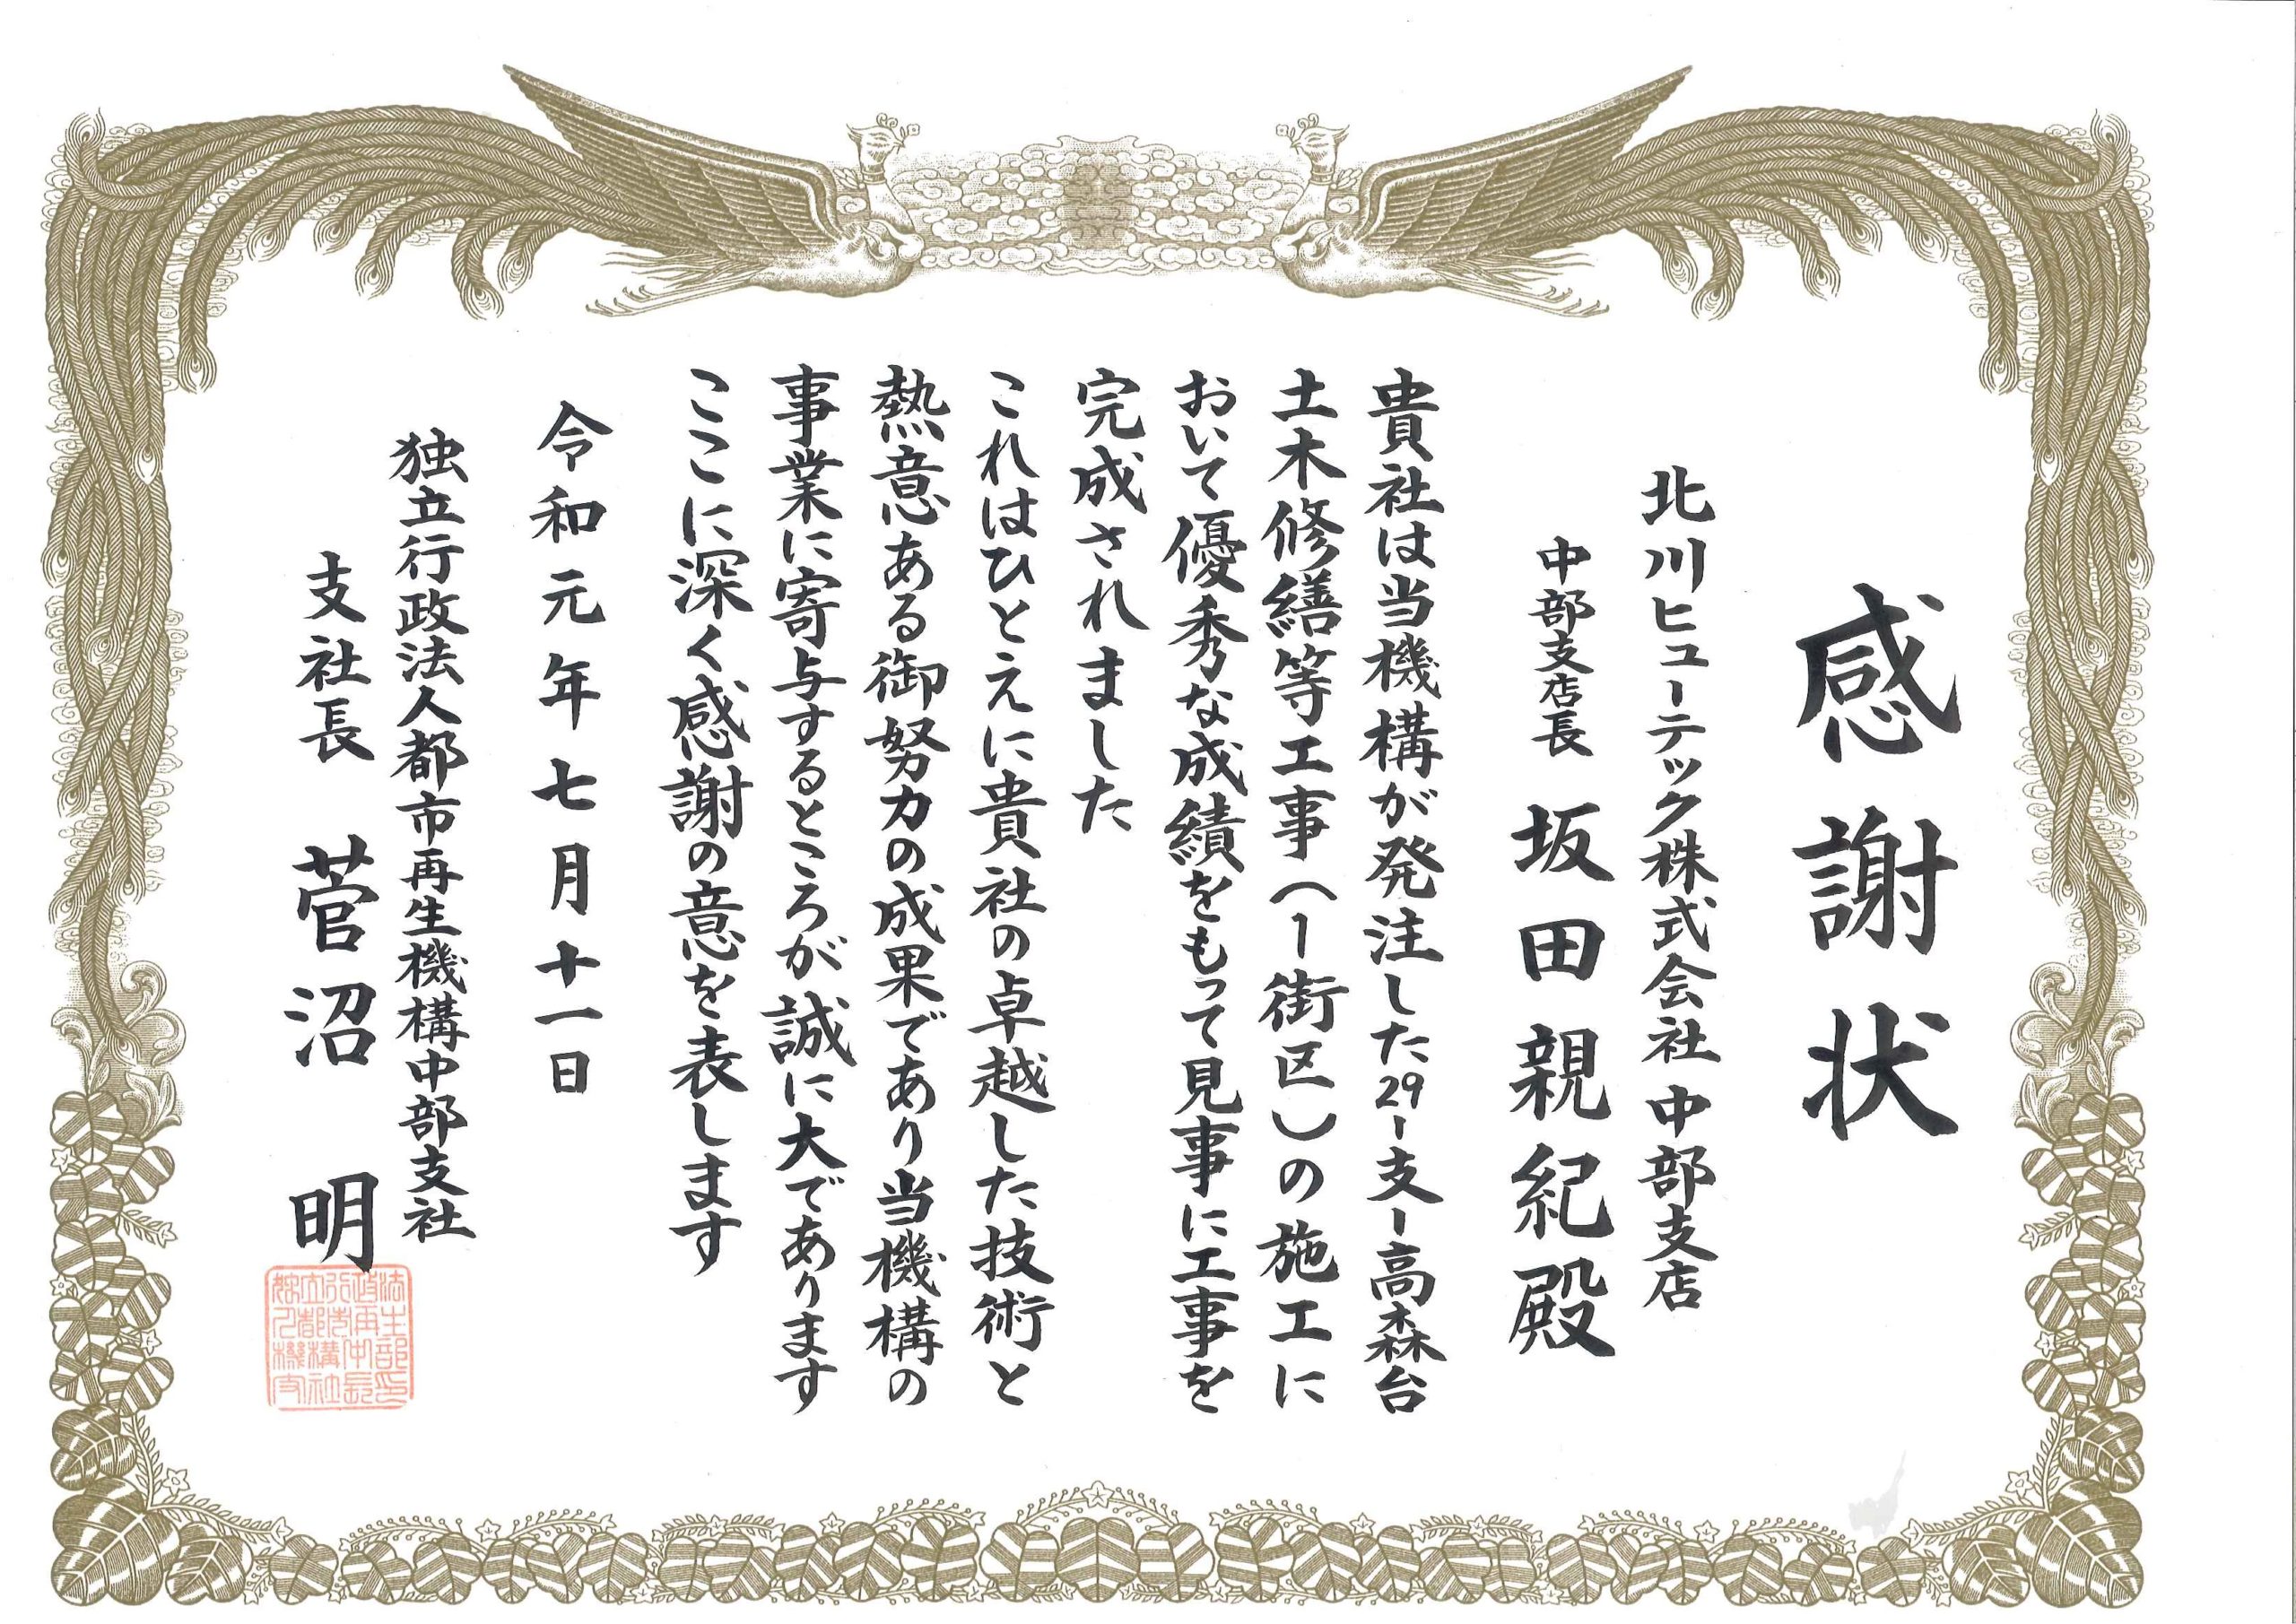 感謝状
北川ヒューテック株式会社 中部支店
中部支店長 坂田親紀殿
貴社は当機構が発注した29ー支ー高森台
土木修繕等工事(1街区)の施工に
おいて優秀な成績をもって見事に工事を
完成されました
これはひとえに貴社の卓越した技術と
熱意ある御努力の成果であり当機構の
事業に寄与するところが誠に大であります
ここに深く感謝の意を表します
令和元年七月十一日
独立行政法人都市再生機構中部支社
支社長 菅沼 明
独立行政法
人都市再生
機構中部
支社長印